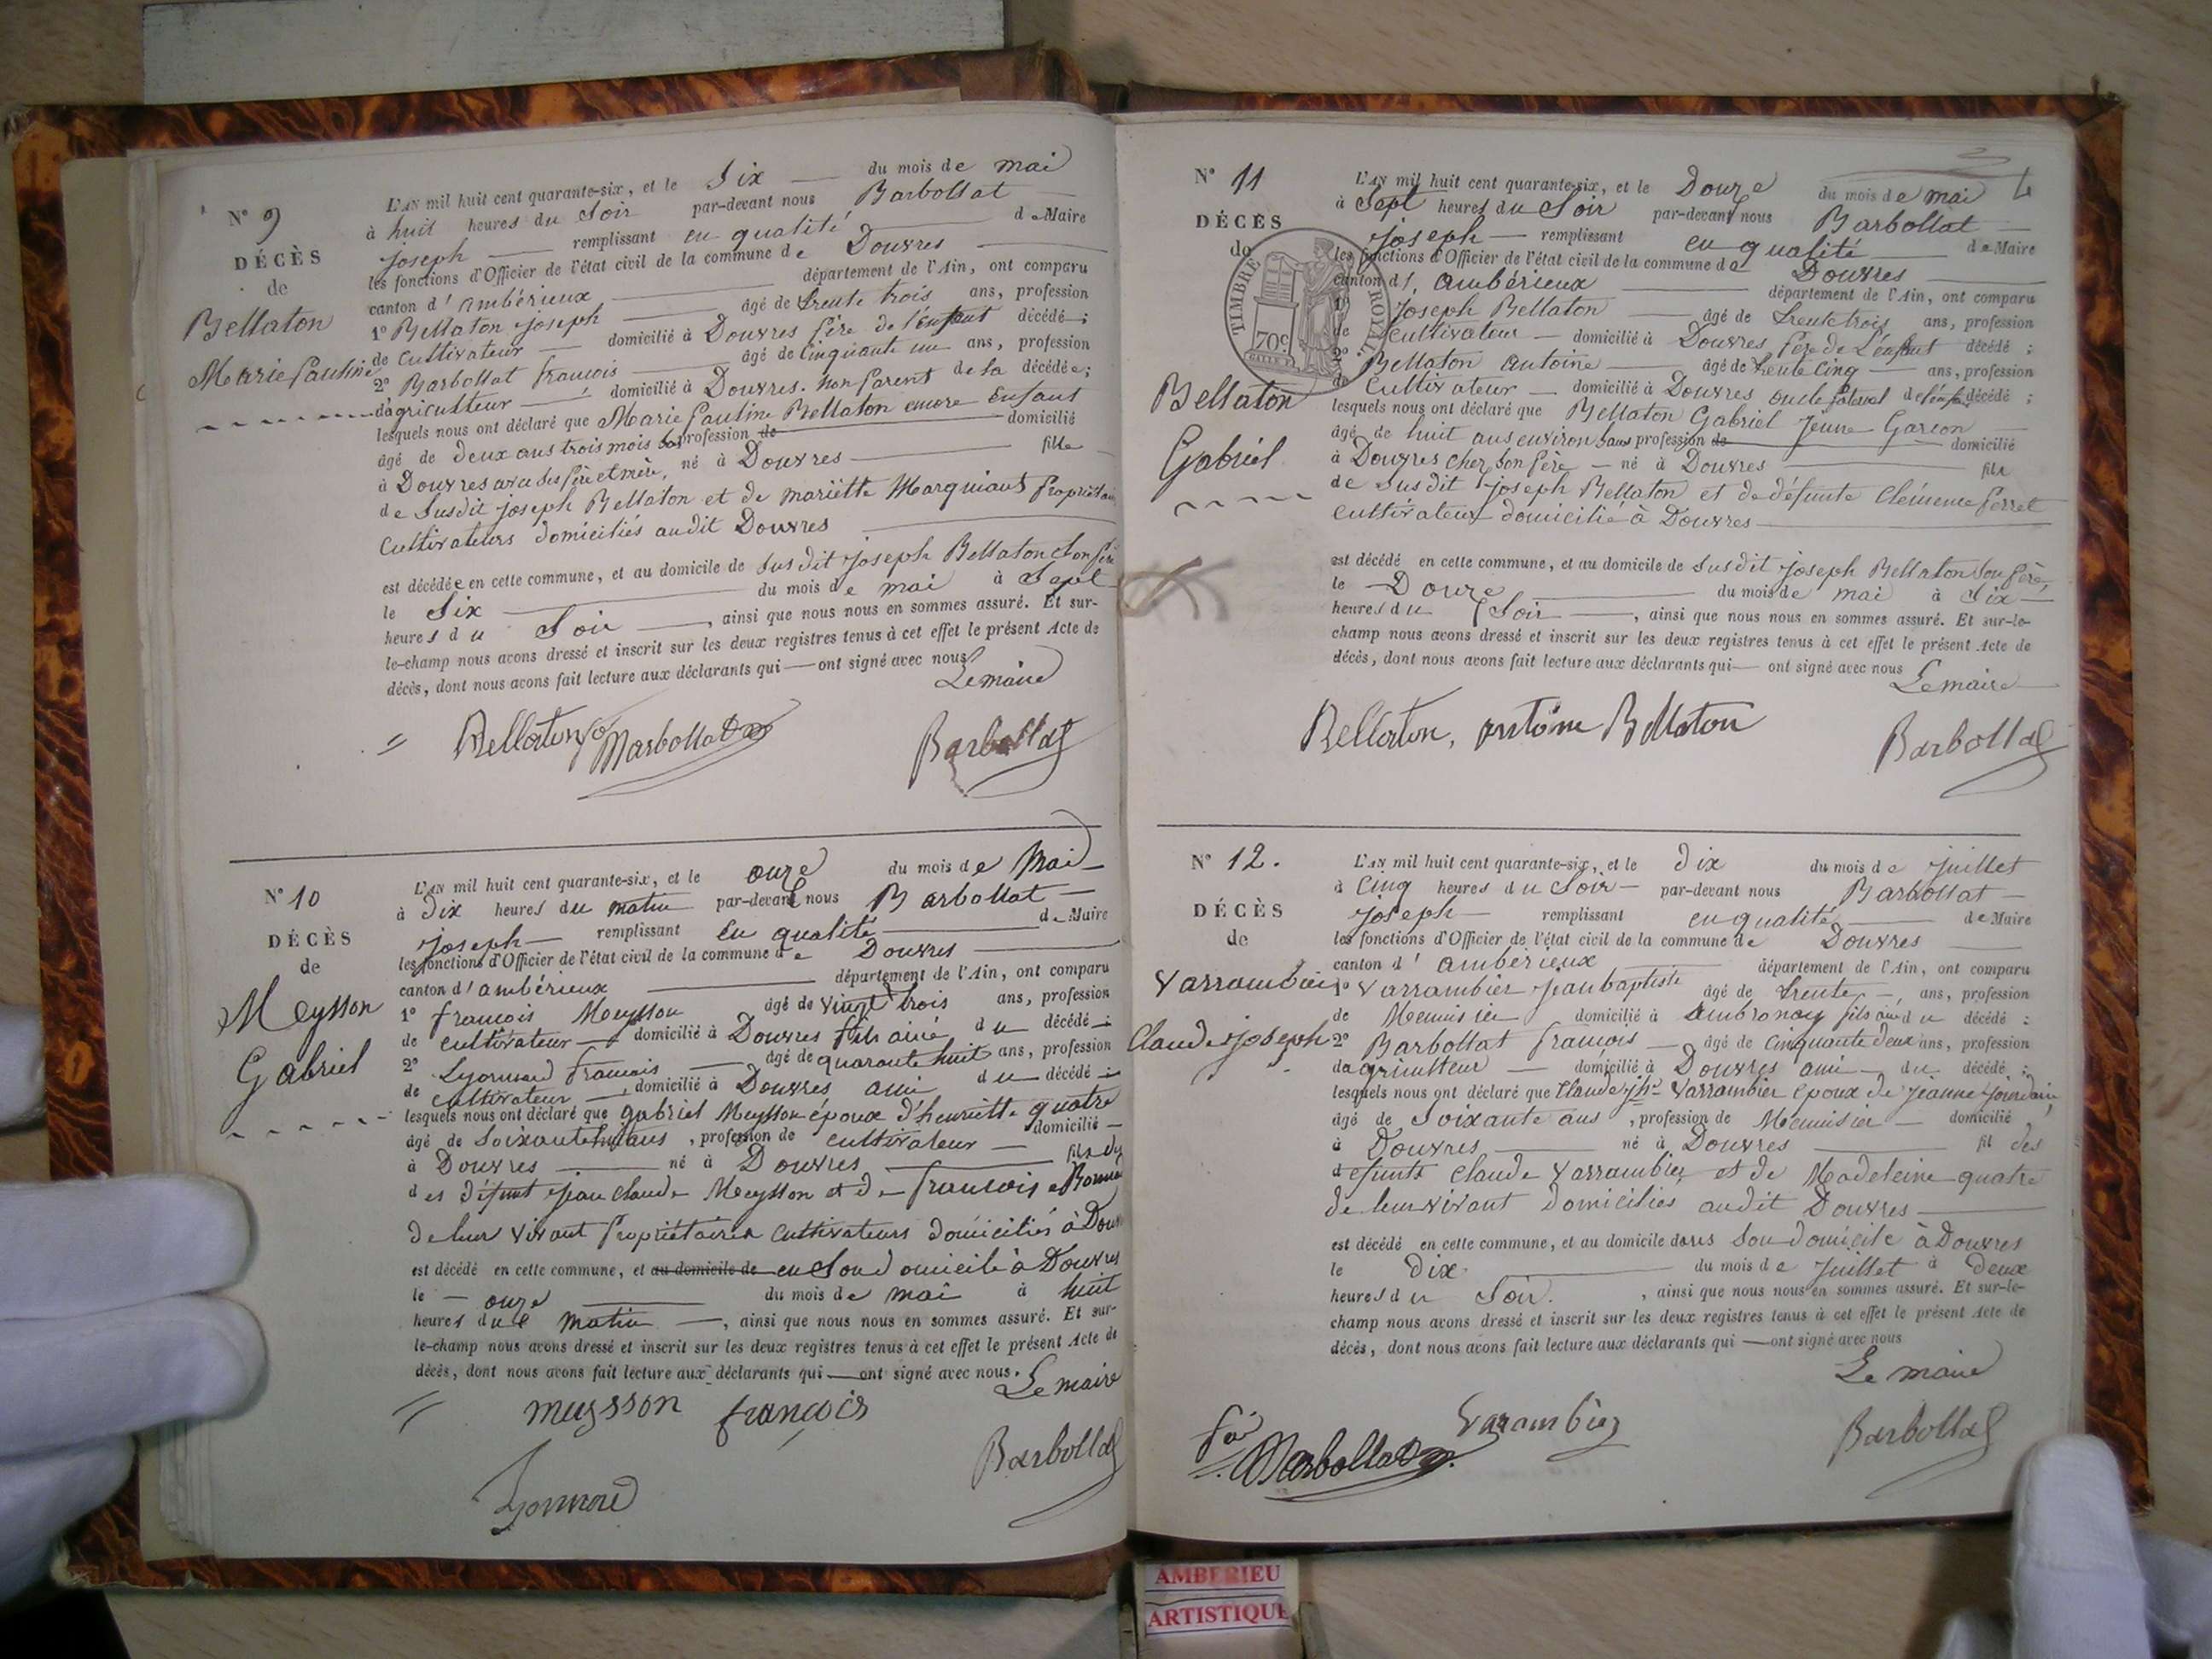 N° 9
DÉCÈS
de
Bellaton
Marie Pauline
L'AN mil huit cent quarante-six, et le Six du mois de mai
à huit heures du Soir par-devant nous Barbollat
joseph remplissant en qualité de Maire
les fonctions d'Officier de l'état civil de la commune de Douvres
canton d'ambérieux département de l'Ain, ont comparu
1° Bellaton joseph âgé de trente trois ans, profession
de Cultivateur domicilié à Douvres père de l'enfant décédé ;
2° Barbollat francois âgé de Cinquante un ans, profession
d'agriculteur domicilié à Douvres. non parent de la décédée ;
lesquels nous ont déclaré que Marie Pauline Bellaton encore Enfant
âgé de deux ans trois mois sans profession de domicilié
à Douvres avec ses père et mère, né à Douvres fille
de Susdit joseph Bellaton et de mariette Marquiant propriétaires
Cultivateurs domiciliés audit Douvres
est décédée en cette commune, et au domicile de Susdit joseph Bellaton Son père
le Six du mois de mai à Sept
heures du Soir, ainsi que nous nous en sommes assuré. Et sur-
le-champ nous avons dressé et inscrit sur les deux registres tenus à cet effet le présent Acte de
décès, dont nous avons fait lecture aux déclarants qui ont signé avec nous
Le maire
Bellaton Barbollat Barbollat
N° 10
DÉCÈS
de
Meysson
Gabriel
L'AN mil huit cent quarante-six, et le onze du mois de Mai
à dix heures du matin par-devant nous Barbollat
joseph remplissant en qualité de Maire
les fonctions d'Officier de l'état civil de la commune de Douvres
canton d'ambérieux département de l'Ain, ont comparu
1° francois Meysson âgé de vingt trois ans, profession
de cultivateur domicilié à Douvres fils ainé du décédé ;
2° Lyonnard francois âgé de quarante huit ans, profession
de cultivateur, domicilié à Douvres ami du décédé ;
lesquels nous ont déclaré que gabriel Meysson époux d'henriette quatre
âgé de Soixante huit ans, profession de cultivateur domicilié
à Douvres né à Douvres fils
des défunt jean claude Meysson et de francoise Bonne
de leur vivant propriétaires cultivateurs domiciliés à Douvres
est décédé en cette commune, et au domicile de en Son domicile à Douvres
le onze du mois de mai à huit
heures du matin, ainsi que nous nous en sommes assuré. Et sur-
le-champ nous avons dressé et inscrit sur les deux registres tenus à cet effet le présent Acte de
décès, dont nous avons fait lecture aux déclarants qui ont signé avec nous.
Le maire
meysson françois
Barbollat
N° 11
DÉCÈS
de
TIMBRE ROYAL
70c
Bellaton
Gabriel
L'AN mil huit cent quarante-six, et le Douze du mois de mai
à Sept heures du Soir par-devant nous Barbollat
joseph remplissant en qualité de Maire
les fonctions d'Officier de l'état civil de la commune de Douvres
canton d'ambérieux département de l'Ain, ont comparu
1° joseph Bellaton âgé de trente trois ans, profession
de cultivateur domicilié à Douvres père de L'enfant décédé ;
2° Bellaton antoine âgé de trente Cinq ans, profession
de Cultivateur domicilié à Douvres oncle paternel de l'enfant décédé ;
lesquels nous ont déclaré que Bellaton Gabriel jeune Garcon
âgé de huit ans environ Sans profession de domicilié
à Douvres chez Son père né à Douvres fils
de Susdit joseph Bellaton et de défunte Clémence perret
cultivateur domicilié à Douvres
est décédé en cette commune, et au domicile de Susdit joseph Bellaton Son père,
le Douze du mois de mai à Six
heures du Soir, ainsi que nous nous en sommes assuré. Et sur-le-
champ nous avons dressé et inscrit sur les deux registres tenus à cet effet le présent Acte de
décès, dont nous avons fait lecture aux déclarants qui ont signé avec nous
Le maire
Bellaton, antoine Bellaton
Barbollat
N° 12.
DÉCÈS
de
Varrambier
Claude joseph
L'AN mil huit cent quarante-six, et le dix du mois de juillet
à Cinq heures du Soir par-devant nous Barbollat
joseph remplissant en qualité de Maire
les fonctions d'Officier de l'état civil de la commune de Douvres
canton d'ambérieux département de l'Ain, ont comparu
1° Varrambier jean baptiste âgé de trente ans, profession
de Menuisier domicilié à Ambronay fils du décédé ;
2° Barbollat francois âgé de Cinquante deux ans, profession
d'agriculteur domicilié à Douvres ami du décédé ;
lesquels nous ont déclaré que Claude jph Varrambier époux de jeanne jourdain,
âgé de Soixante ans, profession de Menuisier domicilié
à Douvres né à Douvres fil des
défunts Claude Varrambier et de Madeleine quatre
de leur vivant domiciliés audit Douvres
est décédé en cette commune, et au domicile dans Son domicile à Douvres
le dix du mois de juillet à deux
heures du Soir., ainsi que nous nous en sommes assuré. Et sur-le-
champ nous avons dressé et inscrit sur les deux registres tenus à cet effet le présent Acte de
décès, dont nous avons fait lecture aux déclarants qui ont signé avec nous
Le maire
Varambier
Barbollat Barbollat
AMBERIEU
ARTISTIQUE